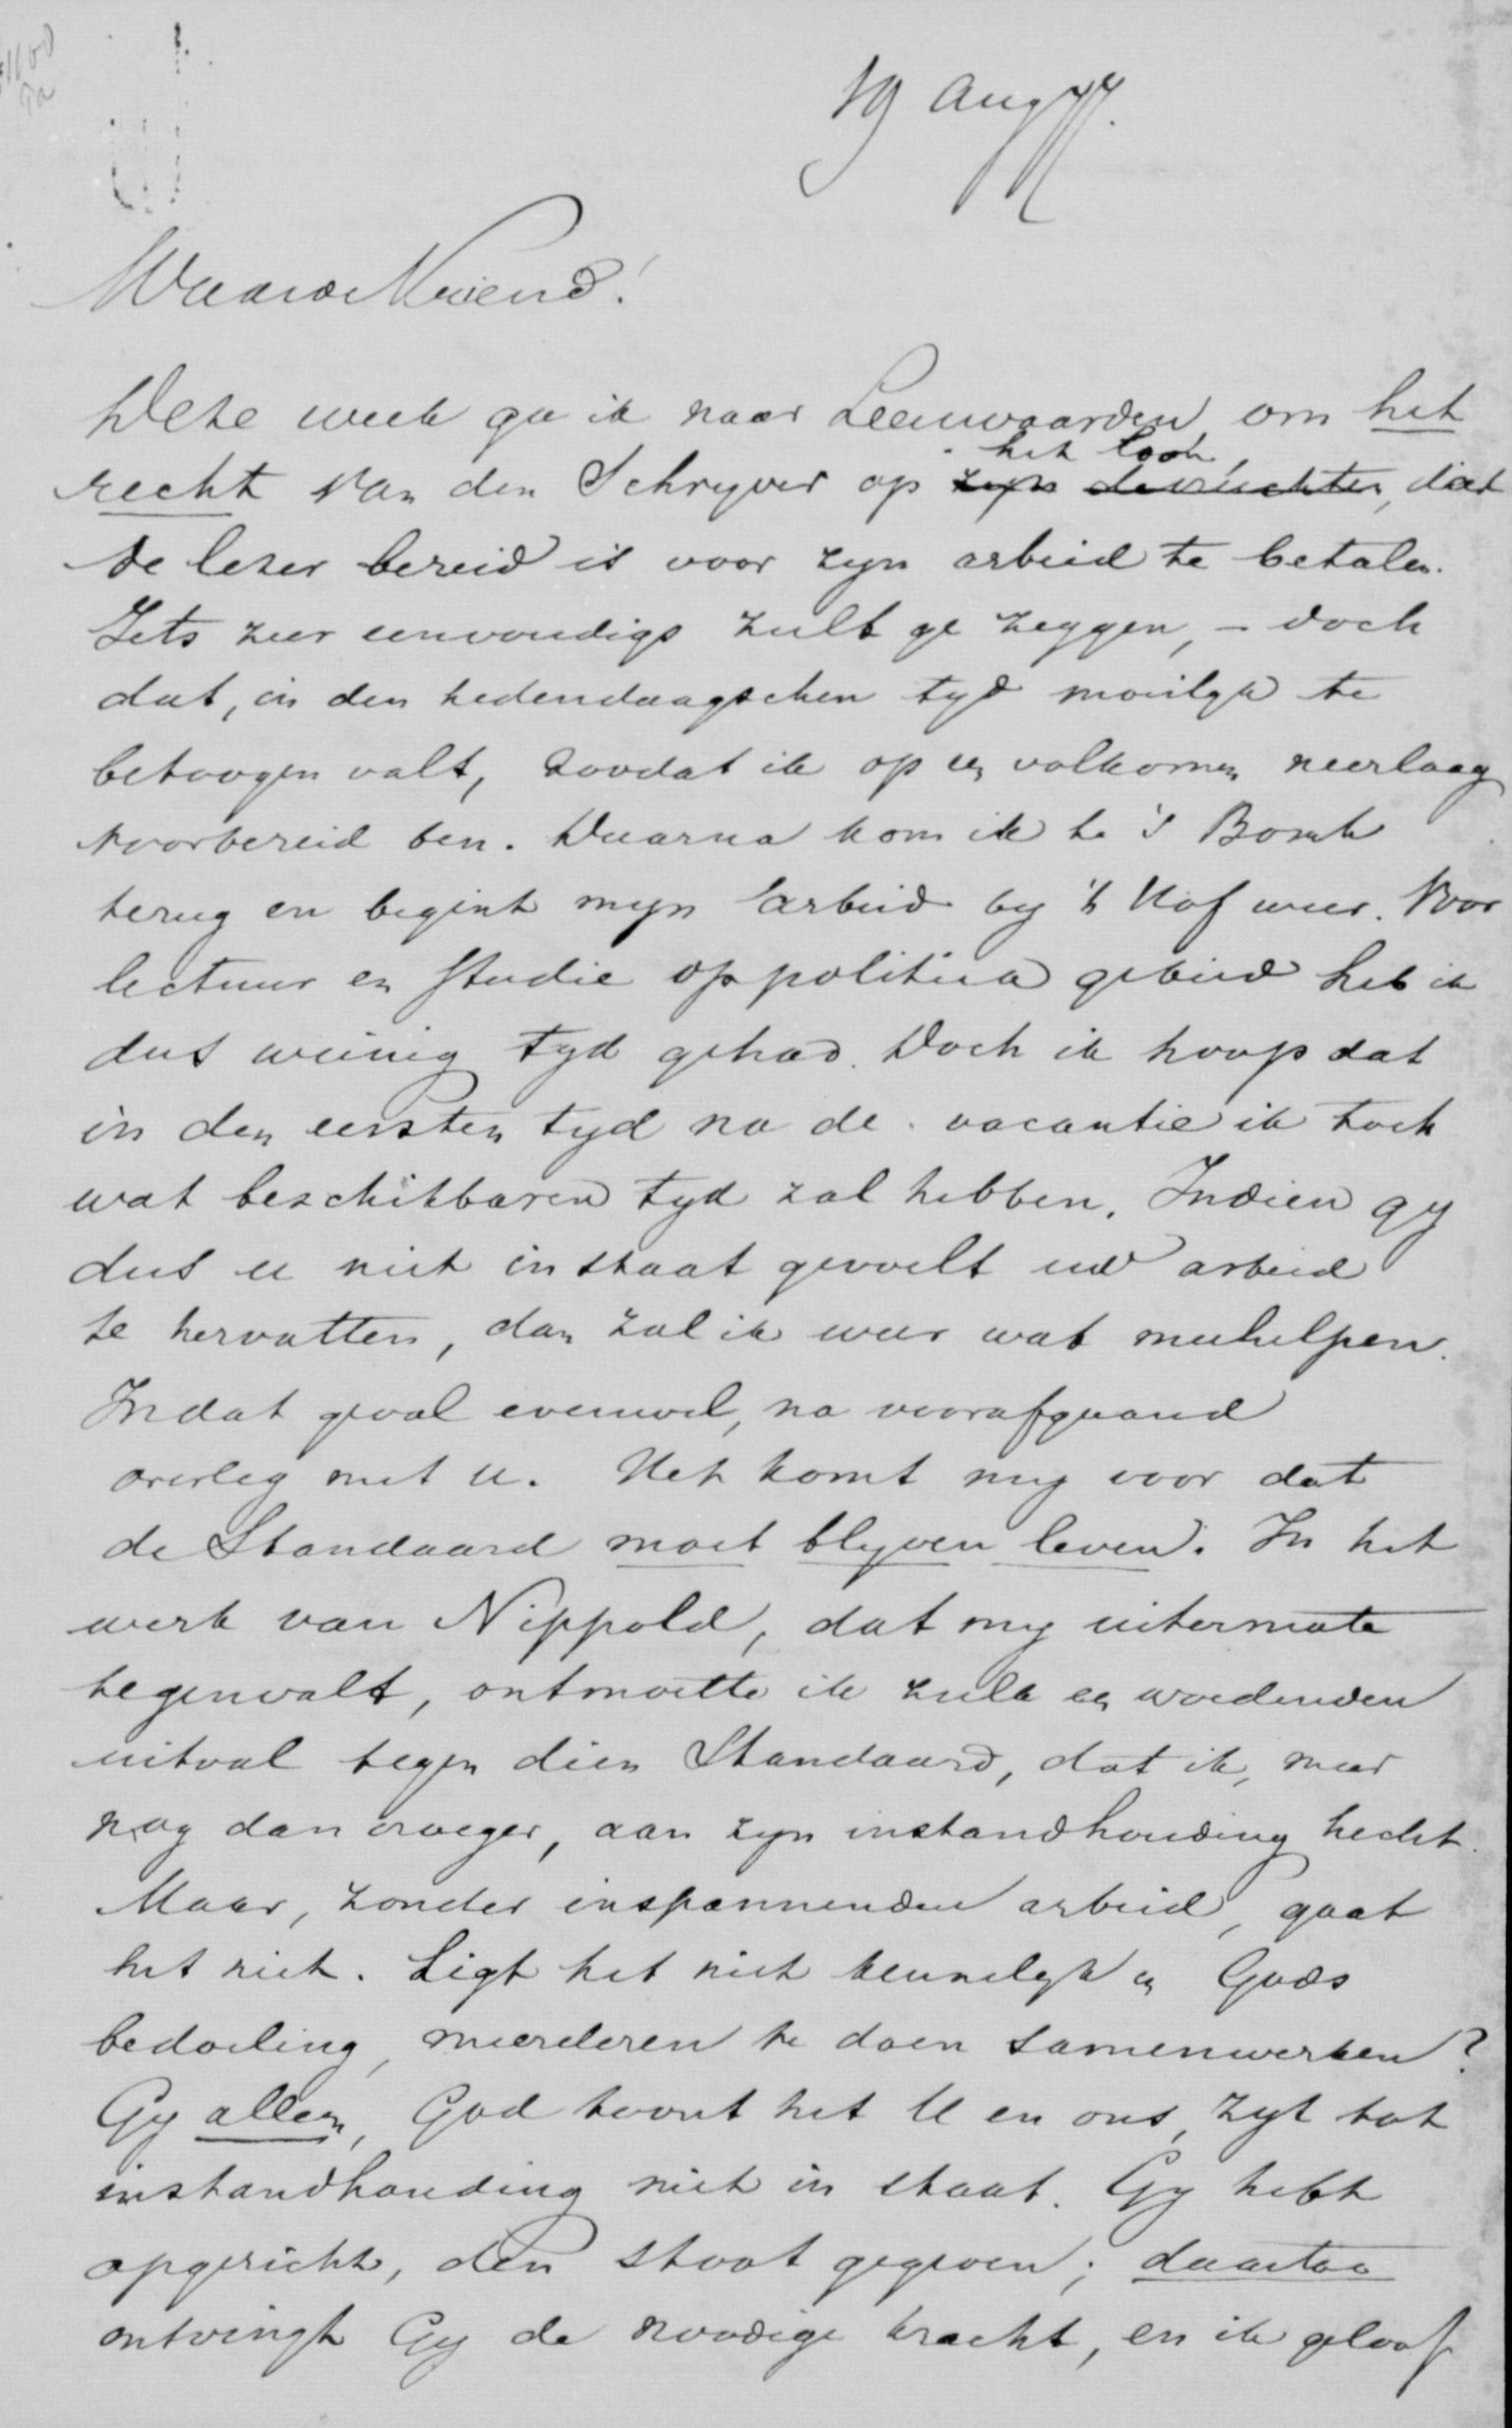 19 Aug 77.
Waarde Vriend!
Deze week ga ik naar Leeuwaarden om het
het loon,
recht van den Schryver op zyn de vruchten, dat
de lezer bereid is voor zyn arbeid te betalen.
Iets zeer eenvoudigs zult ge zeggen, – doch
dat, in den hedendaagschen tyd moeilyk te
betoogen valt, zoodat ik op een volkomen neerlaag
voorbereid ben. Daarna kom ik te 's Bosch
terug en begint myn arbeid by 't Hof weer. Voor
lectuur en studie op politiek gebied heb ik
dus weinig tyd gehad. Doch ik hoop dat
in den eersten tyd na de vacantie ik toch
wat beschikbaren tyd zal hebben. Indien gy
dus u niet in staat gevoelt uw arbeid
te hervatten, dan zal ik weer wat meehelpen.
In dat geval evenwel, na voorafgaand
overleg met u. Het komt my voor dat
de Standaard moet blyven leven. In het
werk van Nippold, dat my uitermate
tegenvalt, ontmoette ik zulk een woedenden
uitval tegen dien Standaard, dat ik, meer
nog dan vroeger, aan zyn instandhouding hecht.
Maar, zonder inspannenden arbeid, gaat
het niet. Ligt het niet kennelyk in Gods
bedoeling, meerderen te doen samenwerken?
Gy alleen, God toont het U en ons, zyt tot
instandhouding niet in staat. Gy hebt
opgericht, den stoot gegeven; daartoe
ontvingt Gy de noodige kracht, en ik geloof